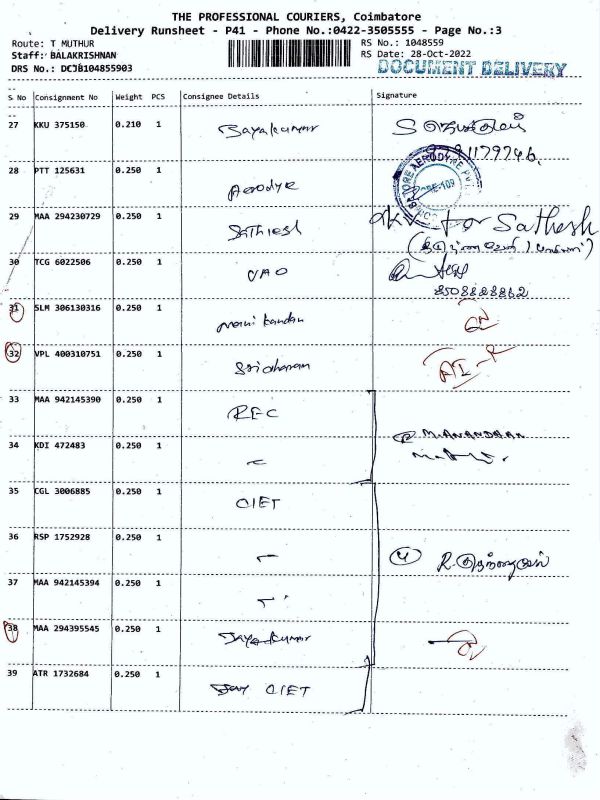 THE PROFESSIONAL COURIERS, Coimbatore
Delivery Runsheet - P41 - Phone No.:0422-3505555 - Page No.:3
Route: T MUTHUR
RS No.: 1048559
Staff: BALAKRISHNAN
RS Date: 28-Oct-2022
DRS No.: DCJB104855903
DOCUMENT DELIVERY
S No Consignment No Weight PCS Consignee Details Signature
27 KKU 375150 0.210 1 Jayakumar
28 PTT 125631 0.250 1 Aerodyre
29 MAA 294230729 0.250 1 Sathiesh for Sathesh
30 TCG 6022506 0.250 1 VAO
31 SLM 306130316 0.250 1 manikandan
32 VPL 400310751 0.250 1 Sridharan
33 MAA 942145390 0.250 1 REC
34 KDI 472483 0.250 1 M.ANANDHAN
35 CGL 3006885 0.250 1 CIET
36 RSP 1752928 0.250 1
37 MAA 942145394 0.250 1
38 MAA 294395545 0.250 1 Jayakumar
39 ATR 1732684 0.250 1 CIET